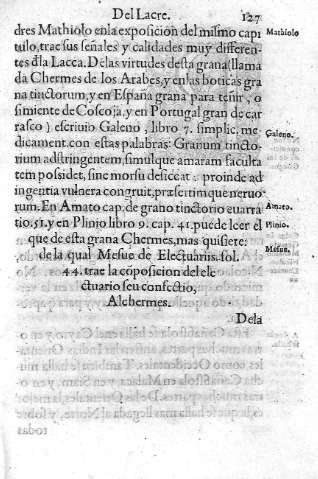 Del Lacre. 127
dres Mathiolo enla exposicion del mismo capi Mathiolo
tulo, trae sus señales y calidades muy differen
tes dla Lacca. De las virtudes desta grana (llama
da Chermes de los Arabes, y en las boticas gra
na tinctorum, y en España grana para teñir, o
simiente de Coscoja, y en Portugal gran de car
rasco) escriuio Galeno, libro 7. simplic. me Galeno.
dicament. con estas palabras: Granum tincto
rium adstringentem, simulque amaram faculta
tem possidet, sine morsu desiccat: proinde ad
ingentia vulnera congruit, præsertimque neruo
rum. En Amato cap. de grano tinctorio euarra Amato.
tio. 51. y en Plinio libro 9. cap. 41. puede leer el Plinio.
que de esta grana Chermes, mas quisiere:
de la qual Mesue de Electuariis. fol. Mesue.
44. trae la cõposicion del ele
ctuario seu confectio,
Alchermes.
Dela